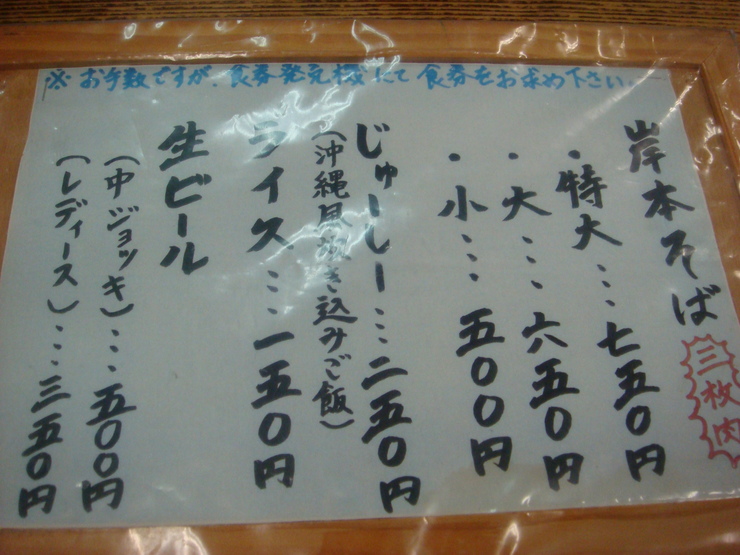 ※お手数ですが、食券発売機にて食券をお求め下さい。
岸本そば
三枚肉
・特大…七五〇円
・大…六五〇円
・小…五〇〇円
じゅーしー…二五〇円
(沖縄風炊き込みご飯)
ライス…一五〇円
生ビール
(中ジョッキ)…五〇〇円
(レディース)…三五〇円